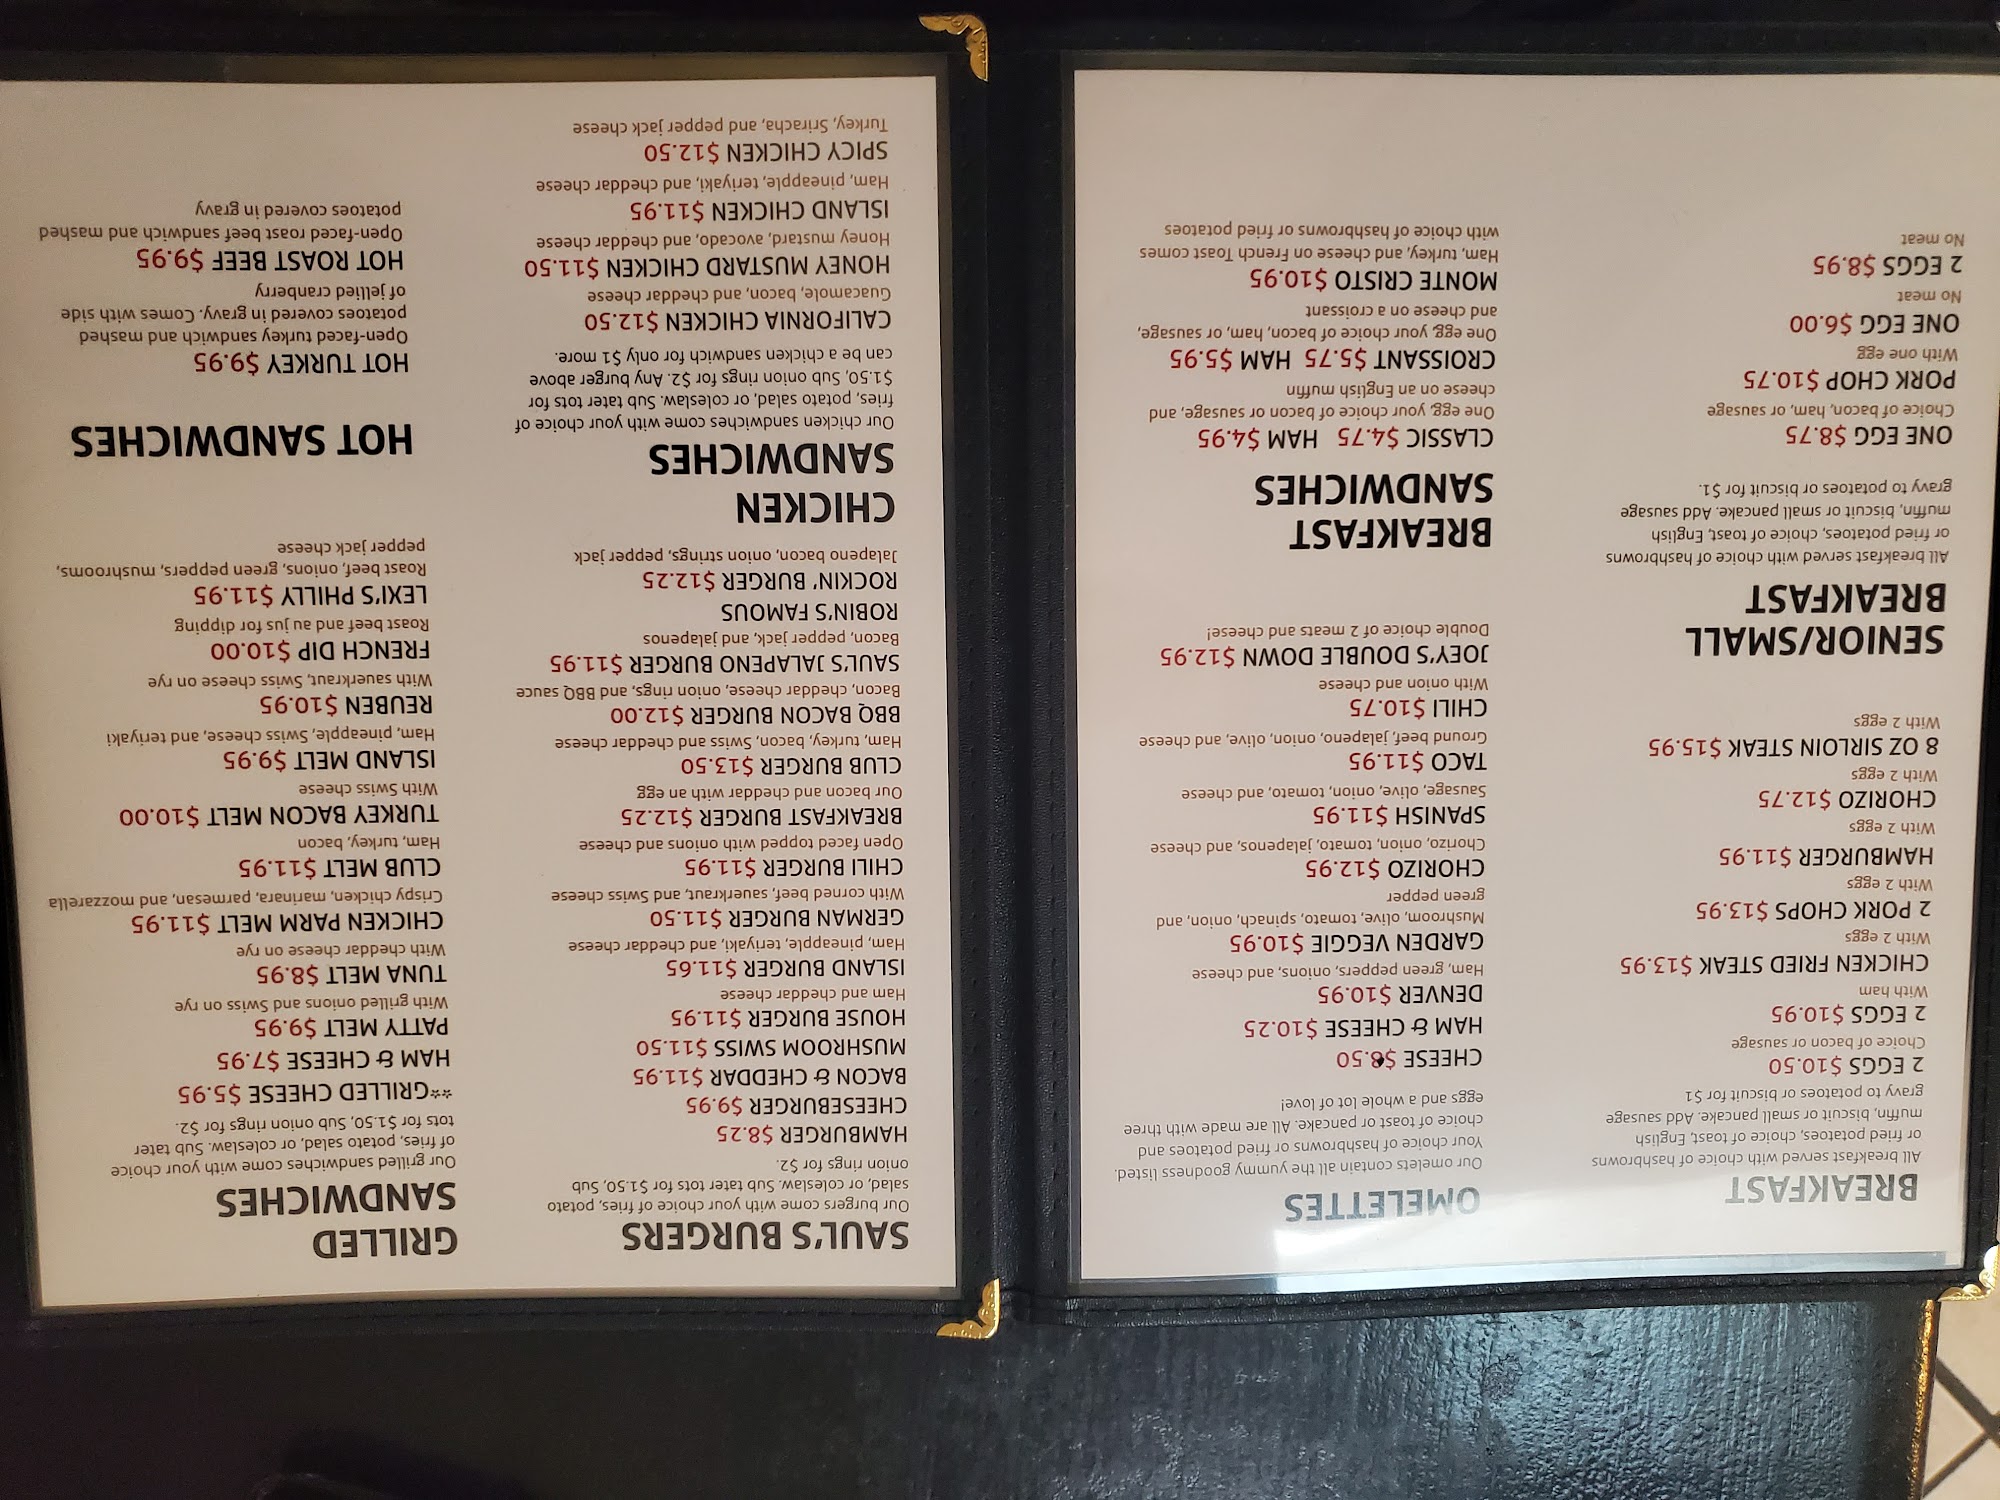 BREAKFAST
All breakfast served with choice of hashbrowns
or fried potatoes, choice of toast, English
muffin, biscuit or small pancake. Add sausage
gravy to potatoes or biscuit for $1
2 EGGS $10.50
Choice of bacon or sausage
2 EGGS $10.95
With ham
CHICKEN FRIED STEAK $13.95
With 2 eggs
2 PORK CHOPS $13.95
With 2 eggs
HAMBURGER $11.95
With 2 eggs
CHORIZO $12.75
With 2 eggs
8 OZ SIRLOIN STEAK $15.95
With 2 eggs
SENIOR/SMALL
BREAKFAST
All breakfast served with choice of hashbrowns
or fried potatoes, choice of toast, English
muffin, biscuit or small pancake. Add sausage
gravy to potatoes or biscuit for $1.
ONE EGG $8.75
Choice of bacon, ham, or sausage
PORK CHOP $10.75
With one egg
ONE EGG $6.00
No meat
2 EGGS $8.95
No meat
OMELETTES
Our omelets contain all the yummy goodness listed.
Your choice of hashbrowns or fried potatoes and
choice of toast or pancake. All are made with three
eggs and a whole lot of love!
CHEESE $8.50
HAM & CHEESE $10.25
DENVER $10.95
Ham, green peppers, onions, and cheese
GARDEN VEGGIE $10.95
Mushroom, olive, tomato, spinach, onion, and
green pepper
CHORIZO $12.95
Chorizo, onion, tomato, jalapenos, and cheese
SPANISH $11.95
Sausage, olive, onion, tomato, and cheese
TACO $11.95
Ground beef, jalapeno, onion, olive, and cheese
CHILI $10.75
With onion and cheese
JOEY'S DOUBLE DOWN $12.95
Double choice of 2 meats and cheese!
BREAKFAST
SANDWICHES
CLASSIC $4.75 HAM $4.95
One egg, your choice of bacon or sausage, and
cheese on an English muffin
CROISSANT $5.75 HAM $5.95
One egg, your choice of bacon, ham, or sausage,
and cheese on a croissant
MONTE CRISTO $10.95
Ham, turkey, and cheese on French Toast comes
with choice of hashbrowns or fried potatoes
SAUL'S BURGERS
Our burgers come with your choice of fries, potato
salad, or coleslaw. Sub tater tots for $1.50, Sub
onion rings for $2.
HAMBURGER $8.25
CHEESEBURGER $9.95
BACON & CHEDDAR $11.95
MUSHROOM SWISS $11.50
HOUSE BURGER $11.95
Ham and cheddar cheese
ISLAND BURGER $11.65
Ham, pineapple, teriyaki, and cheddar cheese
GERMAN BURGER $11.50
With corned beef, sauerkraut, and Swiss cheese
CHILI BURGER $11.95
Open faced topped with onions and cheese
BREAKFAST BURGER $12.25
Our bacon and cheddar with an egg
CLUB BURGER $13.50
Ham, turkey, bacon, Swiss and cheddar cheese
BBQ BACON BURGER $12.00
Bacon, cheddar cheese, onion rings, and BBQ sauce
SAUL'S JALAPENO BURGER $11.95
Bacon, pepper jack, and jalapenos
ROBIN'S FAMOUS
ROCKIN' BURGER $12.25
Jalapeno bacon, onion strings, pepper jack
CHICKEN
SANDWICHES
Our chicken sandwiches come with your choice of
fries, potato salad, or coleslaw. Sub tater tots for
$1.50, Sub onion rings for $2. Any burger above
can be a chicken sandwich for only $1 more.
CALIFORNIA CHICKEN $12.50
Guacamole, bacon, and cheddar cheese
HONEY MUSTARD CHICKEN $11.50
Honey mustard, avocado, and cheddar cheese
ISLAND CHICKEN $11.95
Ham, pineapple, teriyaki, and cheddar cheese
SPICY CHICKEN $12.50
Turkey, Sriracha, and pepper jack cheese
GRILLED
SANDWICHES
Our grilled sandwiches come with your choice
of fries, potato salad, or coleslaw. Sub tater
tots for $1.50, Sub onion rings for $2.
**GRILLED CHEESE $5.95
HAM & CHEESE $7.95
PATTY MELT $9.95
With grilled onions and Swiss on rye
TUNA MELT $8.95
With cheddar cheese on rye
CHICKEN PARM MELT $11.95
Crispy chicken, marinara, parmesan, and mozzarella
CLUB MELT $11.95
Ham, turkey, bacon
TURKEY BACON MELT $10.00
With Swiss cheese
ISLAND MELT $9.95
Ham, pineapple, Swiss cheese, and teriyaki
REUBEN $10.95
With sauerkraut, Swiss cheese on rye
FRENCH DIP $10.00
Roast beef and au jus for dipping
LEXI'S PHILLY $11.95
Roast beef, onions, green peppers, mushrooms,
pepper jack cheese
HOT SANDWICHES
HOT TURKEY $9.95
Open-faced turkey sandwich and mashed
potatoes covered in gravy. Comes with side
of jellied cranberry
HOT ROAST BEEF $9.95
Open-faced roast beef sandwich and mashed
potatoes covered in gravy